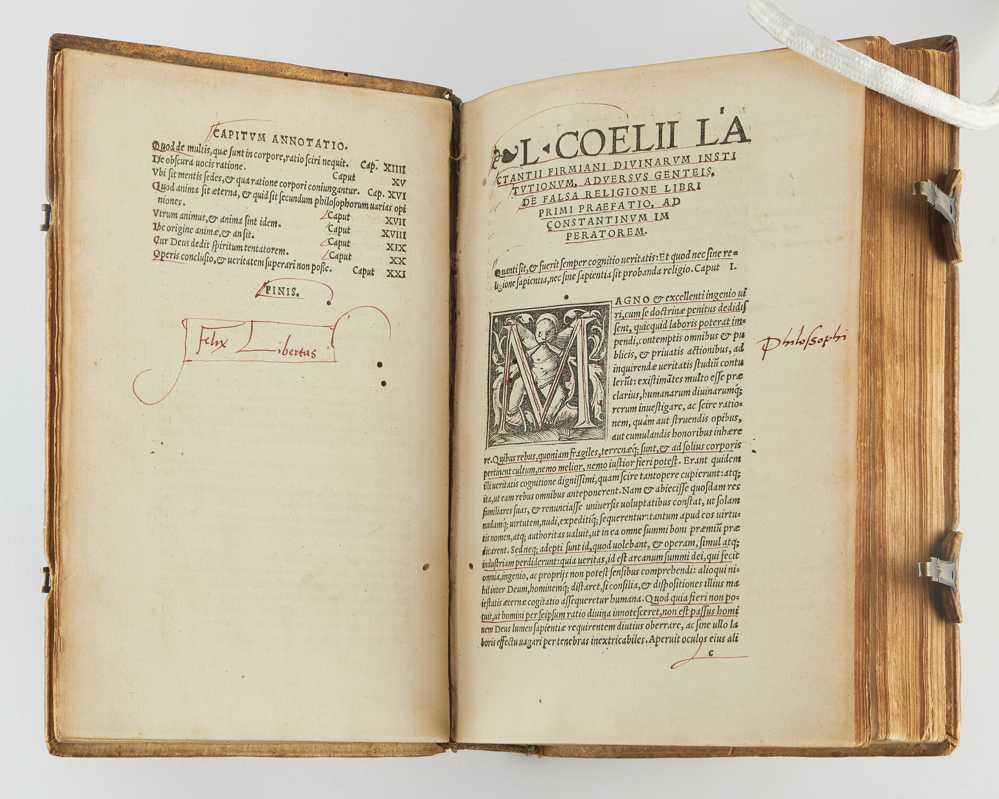 CAPITVM ANNOTATIO.
Quod de multis, quæ sunt in corpore, ratio sciri nequit. Cap. XIIII
De obscura uocis ratione. Caput XV
Vbi sit mentis sedes, & qua ratione corpori coniungantur. Cap. XVI
Quod anima sit æterna, & quid sit secundum philosophorum uarias opi
niones. Caput XVII
Vtrum animus, & anima sint idem. Caput XVIII
De origine animæ, & an sit. Caput XIX
Cur Deus dedit spiritum tentatorem. Caput XX
Operis conclusio, & ueritatem superari non posse. Caput XXI
FINIS.
Felix Libertas
L·COELII LA
CTANTII FIRMIANI DIVINARVM INSTI
TVTIONVM, ADVERSVS GENTEIS,
DE FALSA RELIGIONE LIBRI
PRIMI PRAEFATIO, AD
CONSTANTINVM IM
PERATOREM.
Quanti sit, & fuerit semper cognitio ueritatis: Et quod nec sine re-
ligione sapientia, nec sine sapientia sit probanda religio. Caput I.
MAGNO & excellenti ingenio ui
ri, cum se doctrinæ penitus dedidis
sent, quicquid laboris poterat im-
pendi, contemptis omnibus & pu
blicis, & priuatis actionibus, ad
inquirendæ ueritatis studiũ contu
lerũt: existimãtes multo esse præ
clarius, humanarum diuinarumq;
rerum inuestigare, ac scire ratio-
nem, quàm aut struendis opibus,
aut cumulandis honoribus inhære
re. Quibus rebus, quoniam fragiles, terrenæq; sunt, & ad solius corporis
pertinent cultum, nemo melior, nemo iustior fieri potest. Erant quidem
illi ueritatis cognitione dignissimi, quam scire tantopere cupierunt: atq;
ita, ut eam rebus omnibus anteponerent. Nam & abiecisse quosdam res
familiares suas, & renunciasse uniuersis uoluptatibus constat, ut solam
nudamq; uirtutem, nudi, expeditiq; sequerentur: tantum apud eos uirtu-
tis nomen, atq; authoritas ualuit, ut in ea omne summi boni præmiũ præ
dicarent. Sed neq; adepti sunt id, quod uolebant, & operam, simul atq;
industriam perdiderunt: quia ueritas, id est arcanum summi dei, qui fecit
omnia, ingenio, ac proprijs non potest sensibus comprehendi: alioqui ni-
hil inter Deum, hominemq; distaret, si consilia, & dispositiones illius ma
iestatis æternæ cogitatio assequeretur humana. Quod quia fieri non po-
tuit, ut homini per seipsum ratio diuina innotesceret, non est passus homi
nem Deus lumen sapientiæ requirentem diutius oberrare, ac sine ullo la
boris effectu uagari per tenebras inextricabiles. Aperuit oculos eius ali
c
Philosophi